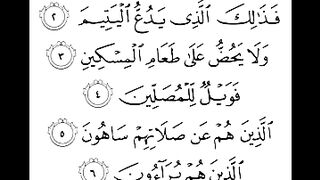 فَذَٰلِكَ ٱلَّذِى يَدُعُّ ٱلْيَتِيمَ ٢
وَلَا يَحُضُّ عَلَىٰ طَعَامِ ٱلْمِسْكِينِ ٣
فَوَيْلٌ لِّلْمُصَلِّينَ ٤
ٱلَّذِينَ هُمْ عَن صَلَاتِهِمْ سَاهُونَ ٥
ٱلَّذِينَ هُمْ يُرَآءُونَ ٦